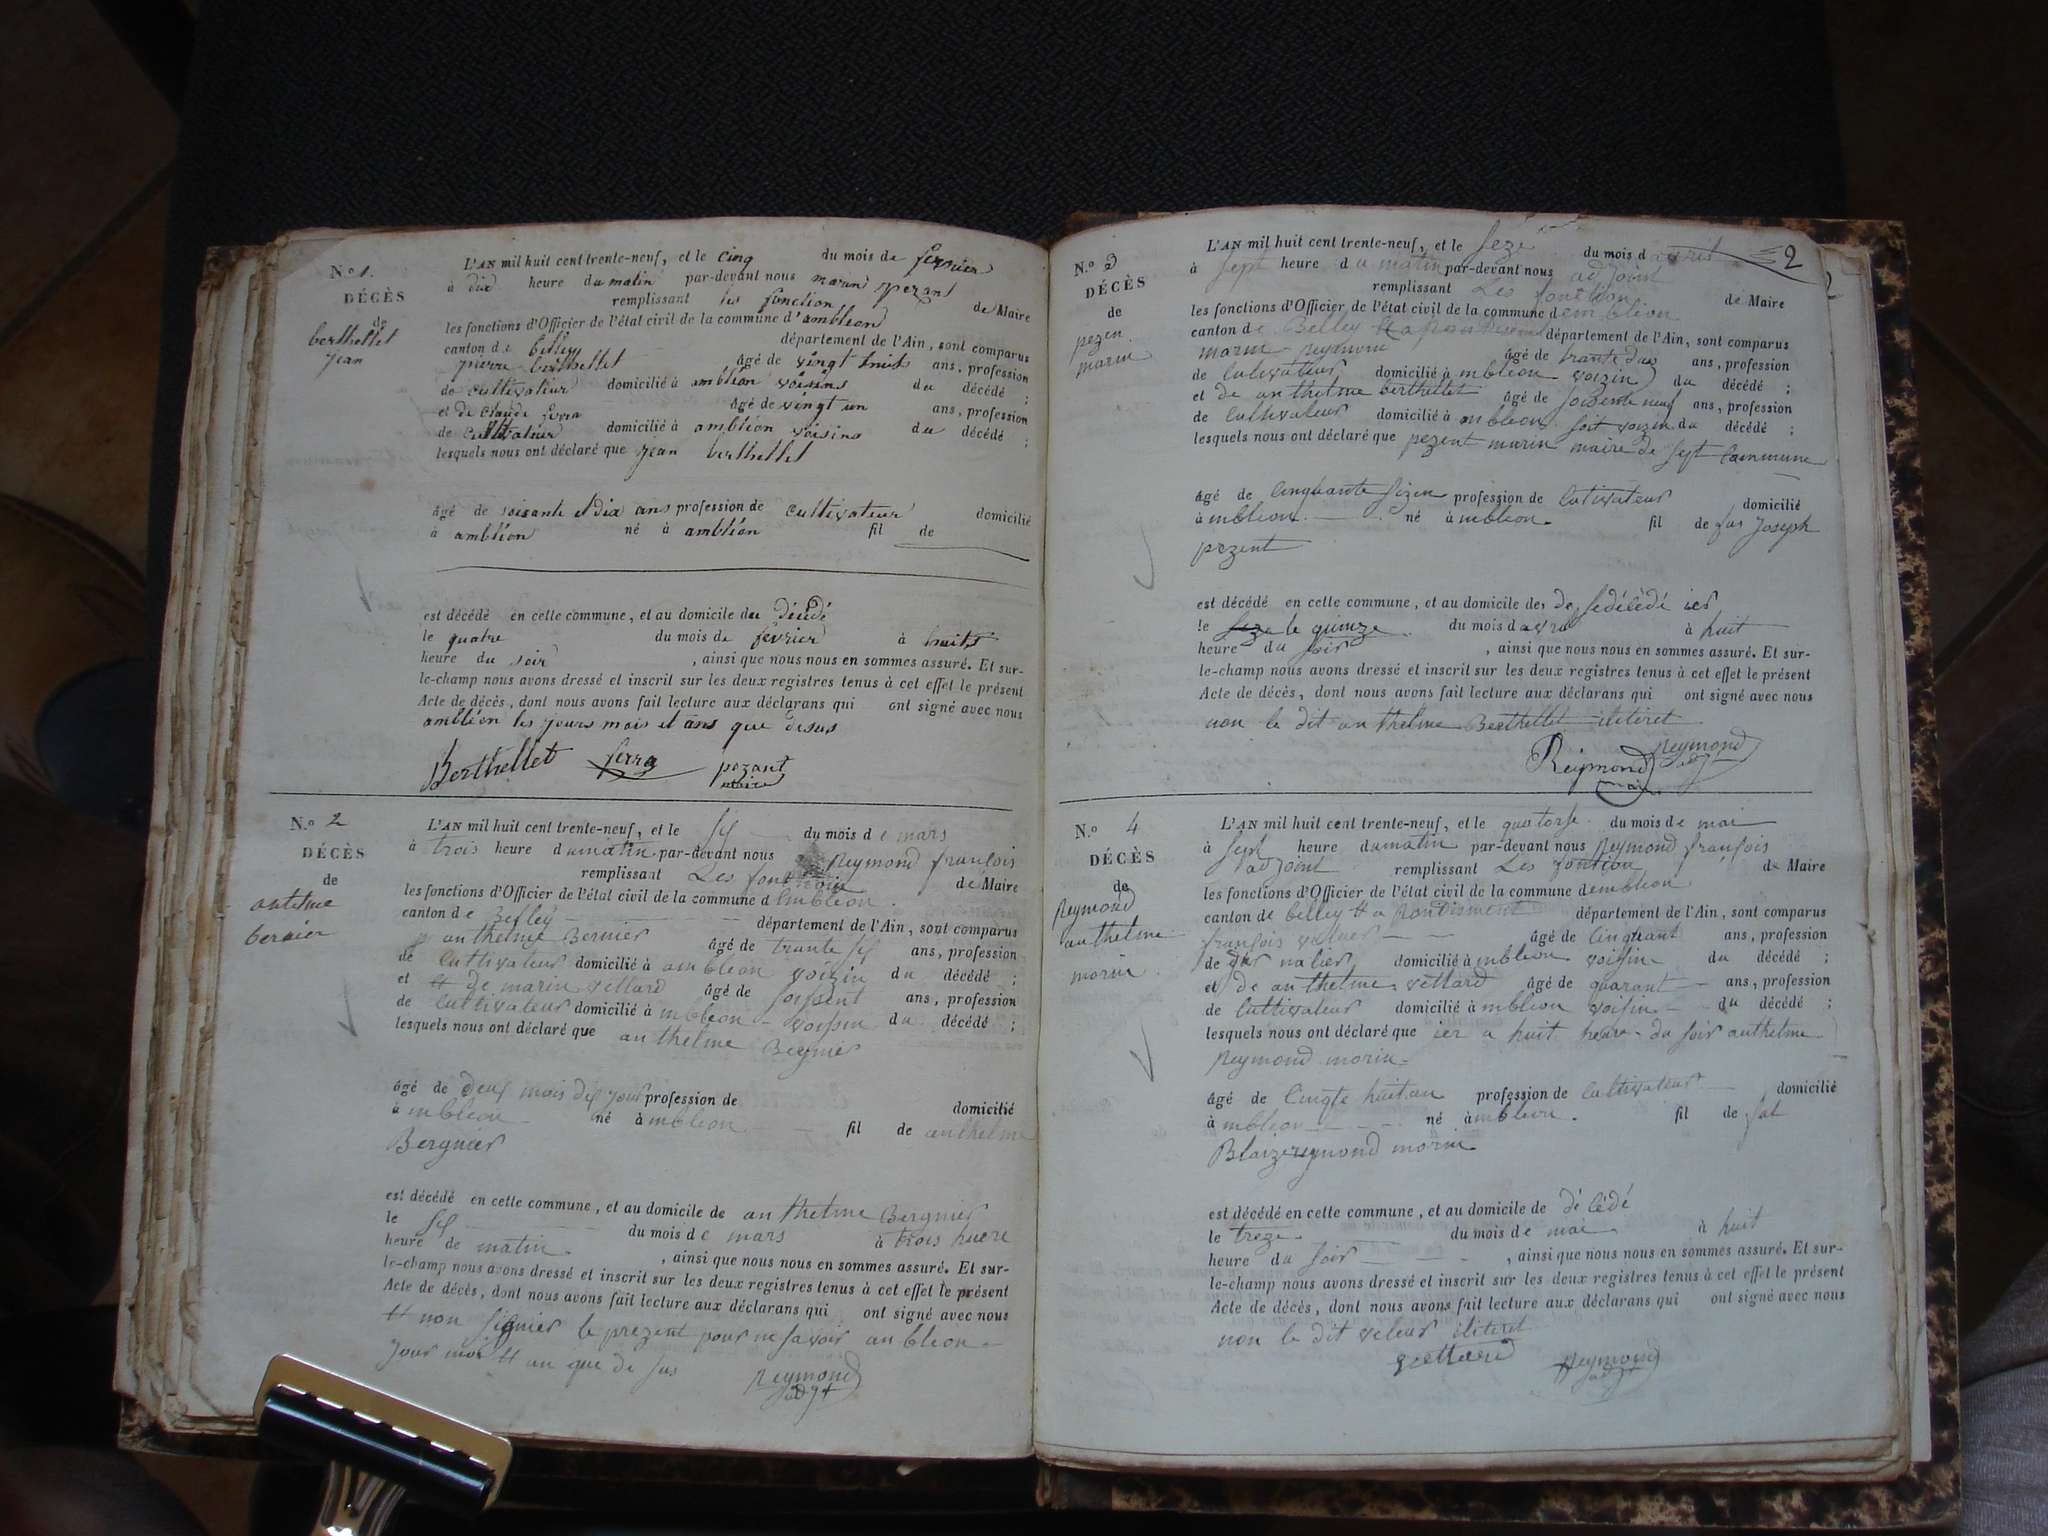 N.º 1.
DÉCÈS
de
berthellet
jean
L'AN mil huit cent trente-neuf, et le cinq du mois de fevrier
à dix heure du matin par-devant nous marin pezant
remplissant les fonction de Maire
les fonctions d'Officier de l'état civil de la commune d'ambléon
canton de belley département de l'Ain, sont comparus
pierre berthellet âgé de vingt huits ans, profession
de cultivateur domicilié à ambléon voisins du décédé ;
et de claude ferra âgé de vingt un ans, profession
de cultivateur domicilié à ambléon voisins du décédé ;
lesquels nous ont déclaré que jean berthellet
âgé de soisante et dix ans profession de cultivateur domicilié
à ambléon né à ambléon fil de
est décédé en cette commune, et au domicile du décédé
le quatre du mois de février à huits
heure du soir , ainsi que nous nous en sommes assuré. Et sur-
le-champ nous avons dressé et inscrit sur les deux registres tenus à cet effet le présent
Acte de décès, dont nous avons fait lecture aux déclarans qui ont signé avec nous
ambléon les jours mois et ans que desus
Berthellet ferra pezant
maire
N.º 2
DÉCÈS
de
antelme
bernier
L'AN mil huit cent trente-neuf, et le du mois de mars
à trois heure du matin par-devant nous Reymond françois
remplissant Les de Maire
les fonctions d'Officier de l'état civil de la commune d'embleon
canton de Belley département de l'Ain, sont comparus
anthelme Bernier âgé de trante ans, profession
de cultivateur domicilié à ambleon voizin du décédé ;
et de marin vettard âgé de soissent ans, profession
de cultivateur domicilié à mbleon voissin du décédé ;
lesquels nous ont déclaré que anthelme Bergnier
âgé de deux mois jour profession de domicilié
à mbleon né à mbleon fil de anthelme
Bergnier
est décédé en cette commune, et au domicile de anthelme Bergnier
le du mois de mars à trois huere
heure de matin , ainsi que nous nous en sommes assuré. Et sur-
le-champ nous avons dressé et inscrit sur les deux registres tenus à cet effet le présent
Acte de décès, dont nous avons fait lecture aux déclarans qui ont signé avec nous
non signier le prezent pour ne savoir anbleon
jour mois an que de sus
Reymond
adjt
2
N.º 3
DÉCÈS
de
pezen
marin
L'AN mil huit cent trente-neuf, et le seze du mois d avril
à sept heure du matin par-devant nous adjoint
remplissant Les fonction de Maire
les fonctions d'Officier de l'état civil de la commune d embleon
canton de Belley département de l'Ain, sont comparus
marin reymond âgé de trante ans, profession
de cultivateur domicilié à mbleon voizin du décédé ;
et de anthelme berthellet âgé de soisente neuf ans, profession
de cultivateur domicilié à mbleon soit voizin du décédé ;
lesquels nous ont déclaré que pezent marin maire de sept commune
âgé de cinquante sizen profession de cultivateur domicilié
à mbleon né à mbleon fil de Joseph
pezent
est décédé en cette commune, et au domicile de sedécédé ier
le seze le quinze du mois d avril à huit
heure du soir , ainsi que nous nous en sommes assuré. Et sur-
le-champ nous avons dressé et inscrit sur les deux registres tenus à cet effet le présent
Acte de décès, dont nous avons fait lecture aux déclarans qui ont signé avec nous
non le dit anthelme Berthellet iliteret
Reymond Reymond
adjt
N.º 4
DÉCÈS
de
Reymond
anthelme
morin
L'AN mil huit cent trente-neuf, et le quatorse du mois de mai
à sept heure du matin par-devant nous Reymond françois
adjoint remplissant Les fontion de Maire
les fonctions d'Officier de l'état civil de la commune d embleon
canton de belley département de l'Ain, sont comparus
françois âgé de cinquant ans, profession
de domicilié à mbleon voisin du décédé ;
et de anthelme vettard âgé de quarant ans, profession
de cultivateur domicilié à mbleon voisin du décédé ;
lesquels nous ont déclaré que ier a huit heure du soir anthelme
Reymond morin
âgé de huit an profession de cultivateur domicilié
à mbleon né à mbleon fil de
Blaize reymond morin
est décédé en cette commune, et au domicile de décédé
le treze du mois de mai à huit
heure du soir , ainsi que nous nous en sommes assuré. Et sur-
le-champ nous avons dressé et inscrit sur les deux registres tenus à cet effet le présent
Acte de décès, dont nous avons fait lecture aux déclarans qui ont signé avec nous
non le dit veleur iliteret
vettard Reymond
adjt